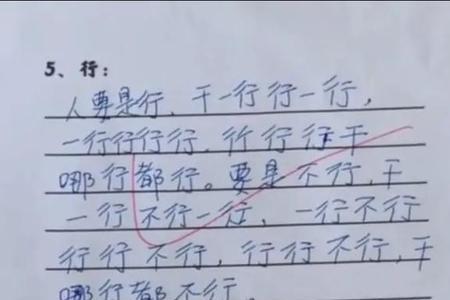 5、行：
人要是行、干一行行一行，
一行行行行、行行行干
哪行都行。要是不行，干
一行不行一行、一行不行
行行不行，行行不行，干
哪行都不行。